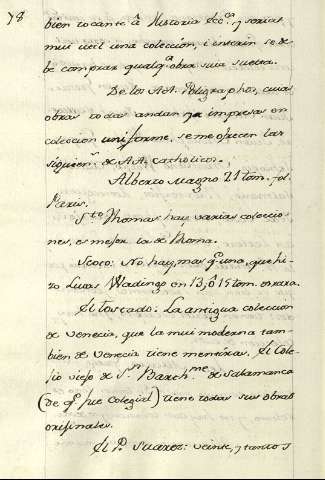 78
bien tocante à Historia Ecc.ª, y seria
mui util una colección, i interin se de-
be comprar qualq.ª obra suia suelta.
De los AA. Poligraphos, cuias
obras todas andan ya impresas en
coleccion uniforme, se me ofrecen las
siguien.s de AA. Catholicos.
Alberto Magno 21 tom. fol.
Paris.
S.to Thomas hay varias coleccio-
nes, es mejor la de Roma.
Scoto: No hay mas q.e una, que hi-
zo Lucas Wadingo en 13, ô 15 tom. es rara.
El Tostado: La antigua coleccion
de Venecia, que la mui moderna tam-
bien de Venecia tiene mentiras. El Cole-
gio viejo de S.n Barth.me de Salamanca
(de q.e fue Colegial) tiene todas sus obras
originales.
El P.e Suarez: veinte, y tantos